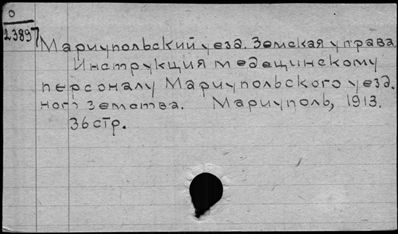 0
23897
Мариупольский уезд. Земская управа
Инструкция медецинскому
персоналу Мариупольского уезд.
ного Земства. Мариуполь, 1913.
36 стр.